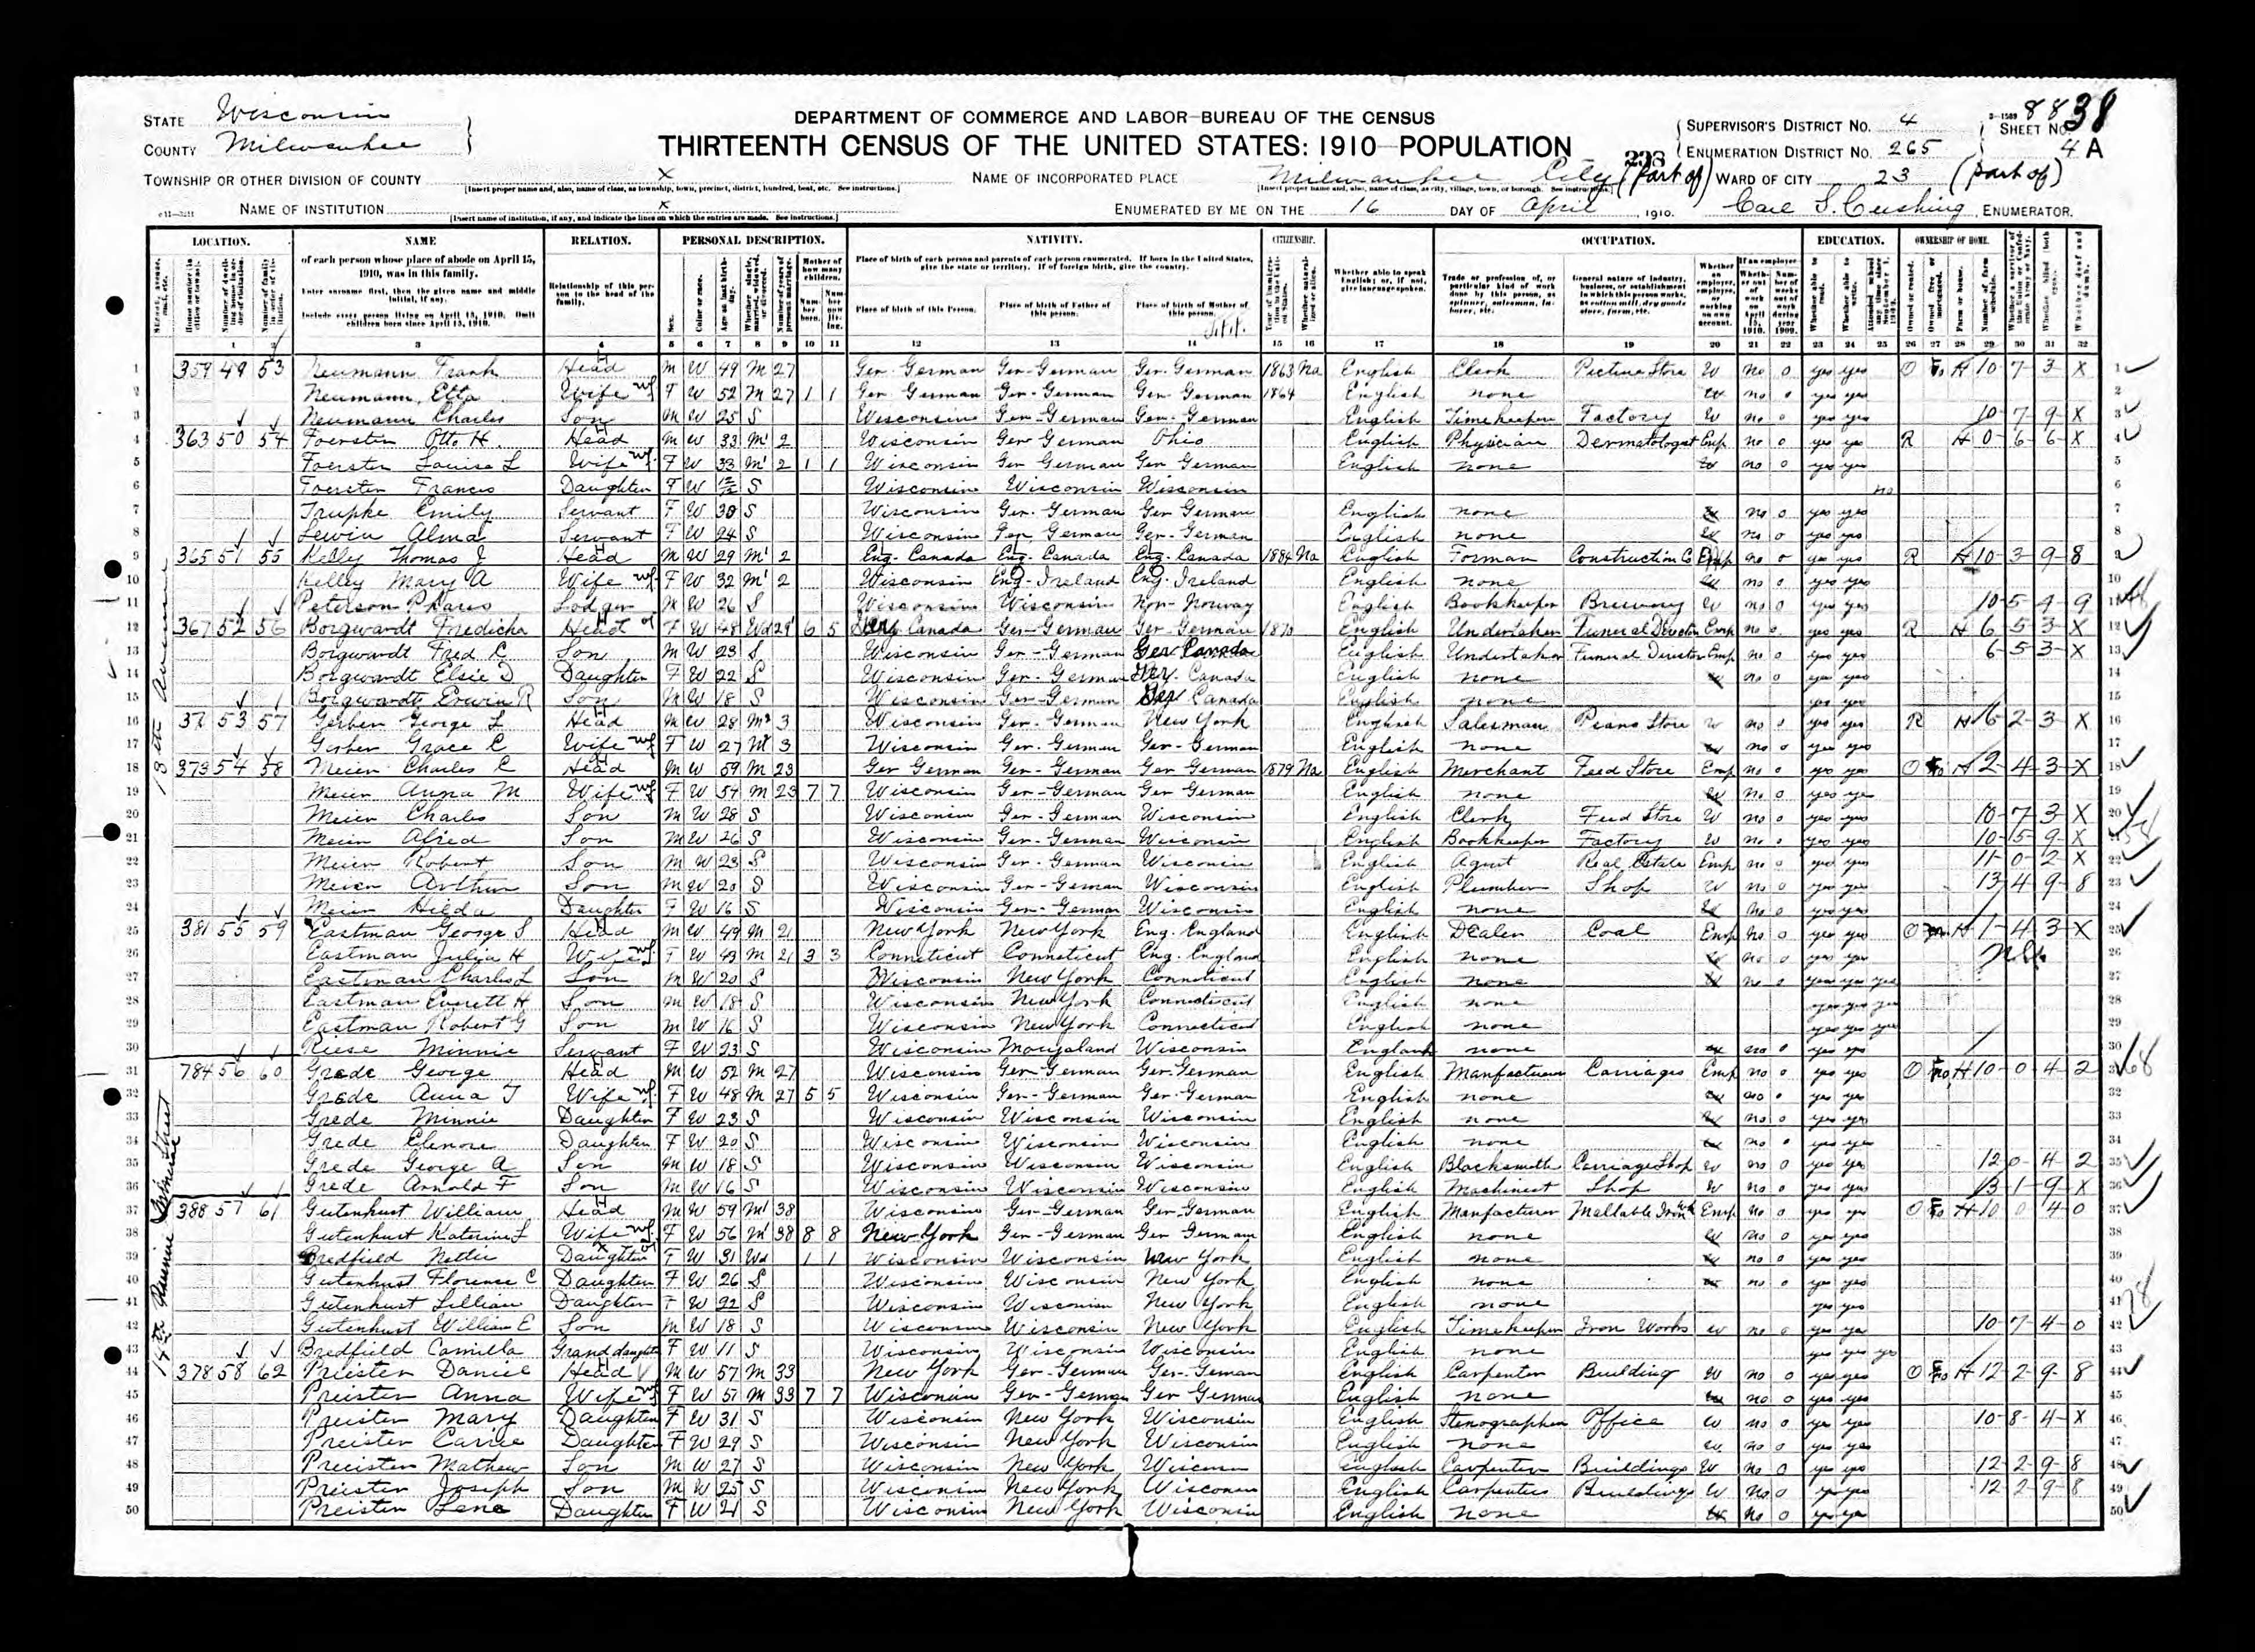 STATE Wisconsin
COUNTY Milwaukee
DEPARTMENT OF COMMERCE AND LABOR—BUREAU OF THE CENSUS
THIRTEENTH CENSUS OF THE UNITED STATES: 1910—POPULATION
SUPERVISOR'S DISTRICT No. 4
ENUMERATION DISTRICT No. 265
SHEET No. 4 A
88 38
TOWNSHIP OR OTHER DIVISION OF COUNTY X
NAME OF INCORPORATED PLACE Milwaukee City (Part of)
WARD OF CITY 23 (part of)
NAME OF INSTITUTION X
ENUMERATED BY ME ON THE 16 DAY OF April, 1910. Carl S. Cushing, ENUMERATOR.
LOCATION. NAME RELATION. PERSONAL DESCRIPTION. NATIVITY. CITIZENSHIP. OCCUPATION. EDUCATION. OWNERSHIP OF HOME.
of each person whose place of abode on April 15, 1910, was in this family.
Enter surname first, then the given name and middle initial, if any.
Include every person living on April 15, 1910. Omit children born since April 15, 1910.
Relationship of this person to the head of the family.
Place of birth of each person and parents of each person enumerated. If born in the United States, give the state or territory. If of foreign birth, give the country.
Place of birth of this Person. Place of birth of Father of this person. Place of birth of Mother of this person.
Whether able to speak English; or, if not, give language spoken.
13th Avenue
1 359 49 53 Neumann Frank Head M W 49 M 27 Ger-German Ger-German Ger-German 1863 Na English Clerk Picture Store W no 0 yes yes O F H 10-7-3-X
2 Neumann, Etta Wife F W 52 M 27 1 1 Ger-German Ger-German Ger-German 1864 English none no 0 yes yes
3 Neumann Charles Son M W 25 S Wisconsin Ger-German Ger-German English Timekeeper Factory W no 0 yes yes 10-7-9-X
4 363 50 54 Foerster Otto H. Head M W 33 M1 2 Wisconsin Ger German Ohio English Physician Dermatologist Emp no 0 yes yes R H 0-6-6-X
5 Foerster Louise L Wife F W 33 M1 2 1 1 Wisconsin Ger German Ger German English none no 0 yes yes
6 Foerster Francis Daughter F W S Wisconsin Wisconsin Wisconsin no
7 Trupke Emily Servant F W 30 S Wisconsin Ger. German Ger German English none no 0 yes yes
8 Lewin Alma Servant F W 24 S Wisconsin Ger German Ger-German English none no 0 yes yes
9 365 51 55 Kelly Thomas J Head M W 29 M1 2 Eng-Canada Eng-Canada Eng-Canada 1884 Na English Forman Construction Co Emp no 0 yes yes R H 10 3 9 8
10 Kelley Mary A Wife F W 32 M1 2 Wisconsin Eng-Ireland Eng-Ireland English none no 0 yes yes
11 Peterson Lodger M W 26 S Wisconsin Wisconsin Nor-Norway English Bookkeeper Brewery W no 0 yes yes 10-5-4-9
12 367 52 56 Borgwardt Fredicka Head F W 48 Wd 29 6 5 Canada Ger-German Ger-German 1870 English Undertaker Funeral Director Emp no 0 yes yes R H 6-5-3-X
13 Borgwardt Fred C Son M W 23 S Wisconsin Ger-German Ger Canada English Undertaker Funeral Director Emp no 0 yes yes 6-5-3-X
14 Borgwardt Elsie D Daughter F W 22 S Wisconsin Ger-German Ger. Canada English none no 0 yes yes
15 Borgwardt Erwin R Son M W 18 S Wisconsin Ger-German Ger Canada English none yes yes
16 371 53 57 Gerber George L Head M W 28 3 Wisconsin Ger-German New York English Salesman Piano Store W no yes yes R H 6 2-3-X
17 Gerber Grace C Wife F W 27 3 Wisconsin Ger. German Ger-German English none no 0 yes yes
18 373 54 58 Meier Charles C Head M W 59 M 23 Ger German Ger-German Ger German 1879 Na English Merchant Feed Store Emp no 0 yes yes O F H 2-4-3-X
19 Meier Anna M Wife F W 54 M 23 7 7 Wisconsin Ger-German Ger German English none no 0 yes yes
20 Meier Charles Son M W 28 S Wisconsin Ger-German Wisconsin English Clerk Feed Store W no 0 yes yes 10-7-3-X
21 Meier Alfred Son M W 26 S Wisconsin Ger-German Wisconsin English Bookkeeper Factory W no 0 yes yes 10-5-9-X
22 Meier Robert Son M W 23 S Wisconsin Ger-German Wisconsin English Agent Real Estate Emp no 0 yes yes 11-0-2-X
23 Meier Arthur Son M W 20 S Wisconsin Ger-German Wisconsin English Plumber Shop W no 0 yes yes 13 4 9-8
24 Meier Hilda Daughter F W 16 S Wisconsin Ger-German Wisconsin English none no 0 yes yes
25 381 55 59 Eastman George S Head M W 49 M 21 New York New York Eng. England English Dealer Coal Emp no 0 yes yes O H 1-4-3-X
26 Eastman Julia H Wife F W 43 M 21 3 3 Conneticut Connecticut Eng. England English none no 0 yes yes
27 Eastman Charles L Son M W 20 S Wisconsin New York Connecticut English none no 0 yes yes yes
28 Eastman Everett H Son M W 18 S Wisconsin New York Connecticut English none yes yes yes
29 Eastman Robert G Son M W 16 S Wisconsin New York Connecticut English none yes yes yes
30 Riese Minnie Servant F W 23 S Wisconsin Wisconsin none no 0 yes yes
31 784 56 60 Grede George Head M W 52 M 27 Wisconsin Ger-German Ger-German English Manfacturer Carriages Emp no 0 yes yes O F H 10-0-4-2
32 Grede Anna T Wife F W 48 M 27 5 5 Wisconsin Ger-German Ger-German English none no 0 yes yes
33 Grede Minnie Daughter F W 23 S Wisconsin Wisconsin Wisconsin English none no 0 yes yes
34 Grede Elenore Daughter F W 20 S Wisconsin Wisconsin Wisconsin English none no 0 yes yes
35 Grede George A Son M W 18 S Wisconsin Wisconsin Wisconsin English Blacksmith Carriage Shop W no 0 yes yes 12 0-4-2
36 Grede Arnold F Son M W 16 S Wisconsin Wisconsin Wisconsin English Machinest Shop W no 0 yes yes 13-1-9-X
37 388 57 61 Gutenhurst William Head M W 59 M1 38 Wisconsin Ger-German Ger-German English Manfacturer Mallable Iron Emp no 0 yes yes O F H 10 0 4 0
38 Gutenhurst Katerine L Wife F W 56 M1 38 8 8 New York Ger-German Ger German English none no 0 yes yes
39 Bredfield Nettie Daughter F W 31 Wd 1 1 Wisconsin Wisconsin New York English none no 0 yes yes
40 Gutenhurst Florence C Daughter F W 26 S Wisconsin Wisconsin New York English none no 0 yes yes
41 Gutenhurst Lillian Daughter F W 22 S Wisconsin Wisconsin New York English none yes yes
42 Gutenhurst William E Son M W 18 S Wisconsin Wisconsin New York English Timekeeper Iron Works W no 0 yes yes 10-7-4-0
43 Bredfield Camilla Grand daughter F W 11 S Wisconsin Wisconsin Wisconsin English none yes yes yes
44 378 58 62 Priester Daniel Head M W 57 M 33 New York Ger-German Ger-German English Carpenter Building W no 0 yes yes O F H 12-2-9-8
45 Preister Anna Wife F W 51 M 33 7 7 Wisconsin Ger-German Ger German English none no 0 yes yes
46 Preister Mary Daughter F W 31 S Wisconsin New York Wisconsin English Stenographer Office W no 0 yes yes 10-8-4-X
47 Preister Carrie Daughter F W 29 S Wisconsin New York Wisconsin English none no 0 yes yes
48 Preister Mathew Son M W 27 S Wisconsin New York Wisconsin English Carpenter Buildings W no 0 yes yes 12-2-9-8
49 Preister Joseph Son M W 25 S Wisconsin New York Wisconsin English Carpenter Buildings W no 0 yes yes 12-2-9-8
50 Preister Lena Daughter F W 21 S Wisconsin New York Wisconsin English none no 0 yes yes